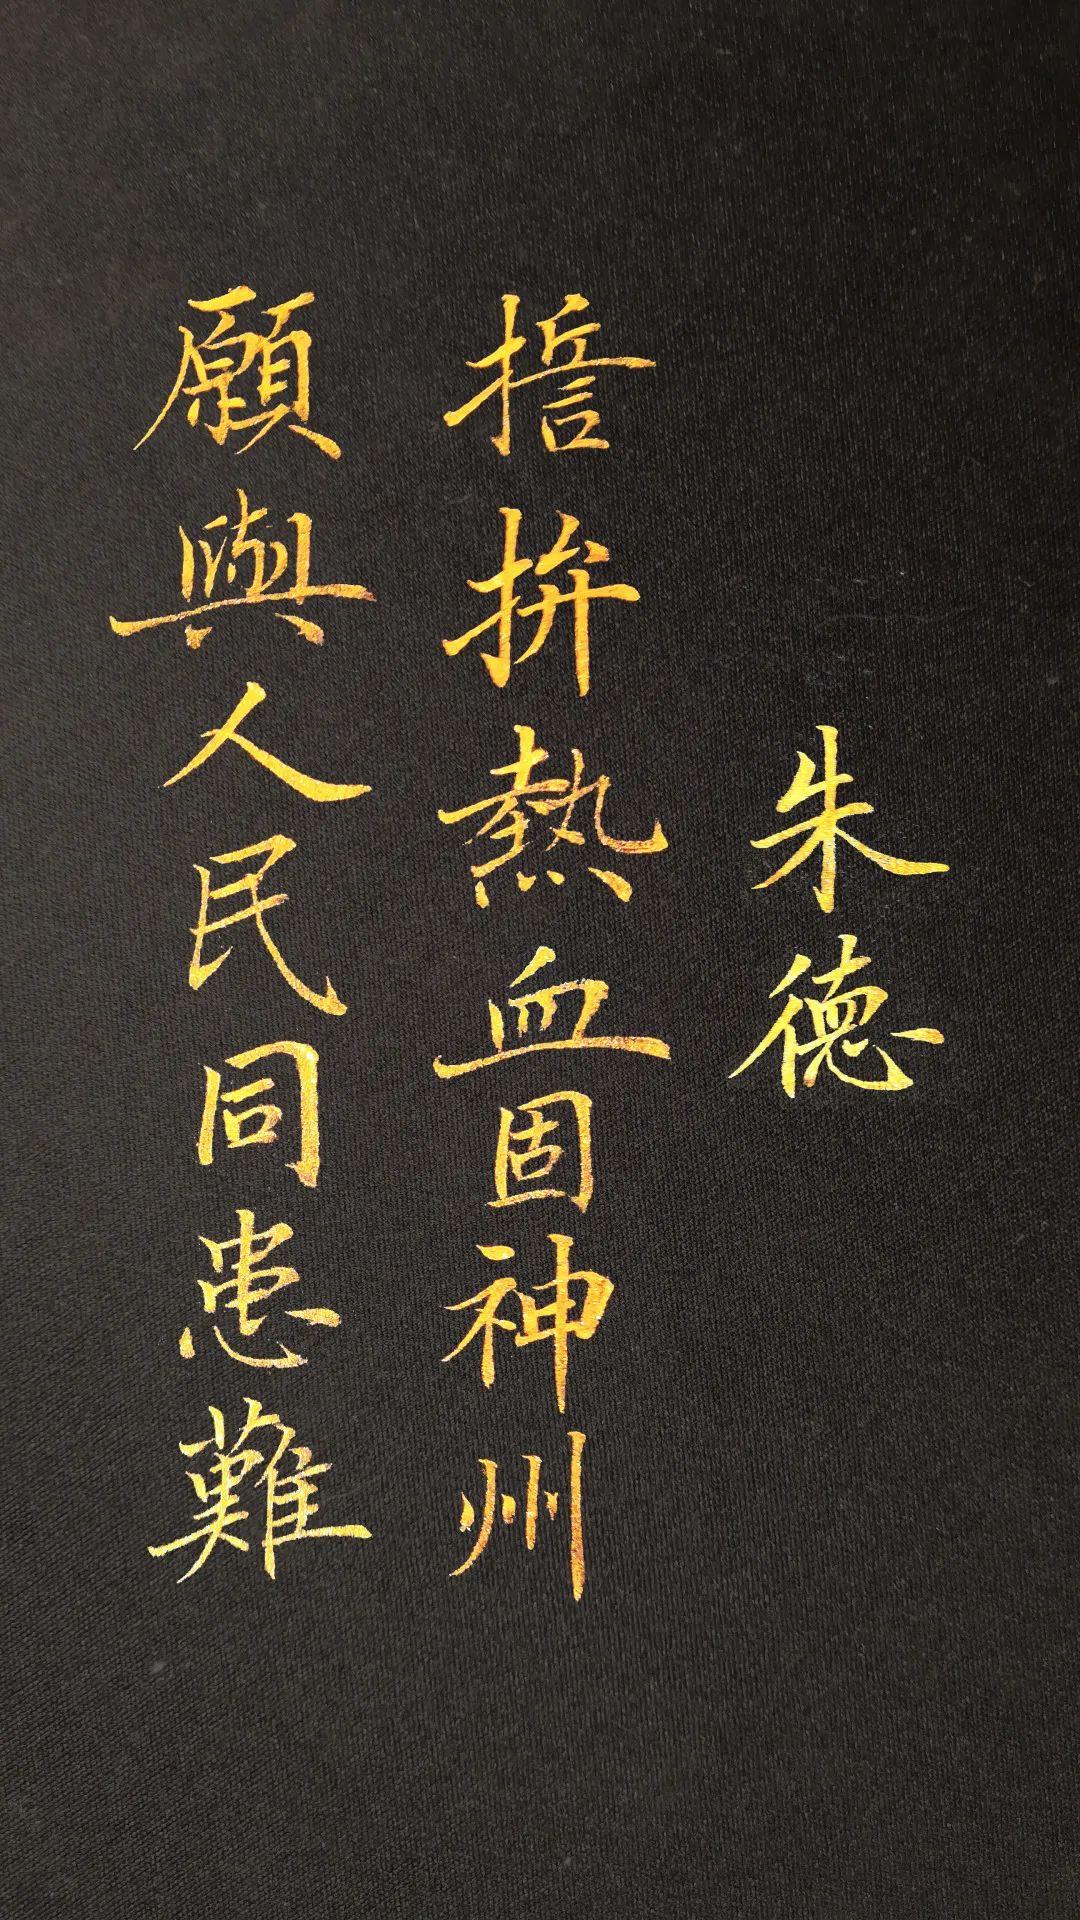 朱德
誓拚熱血固神州
願與人民同患難